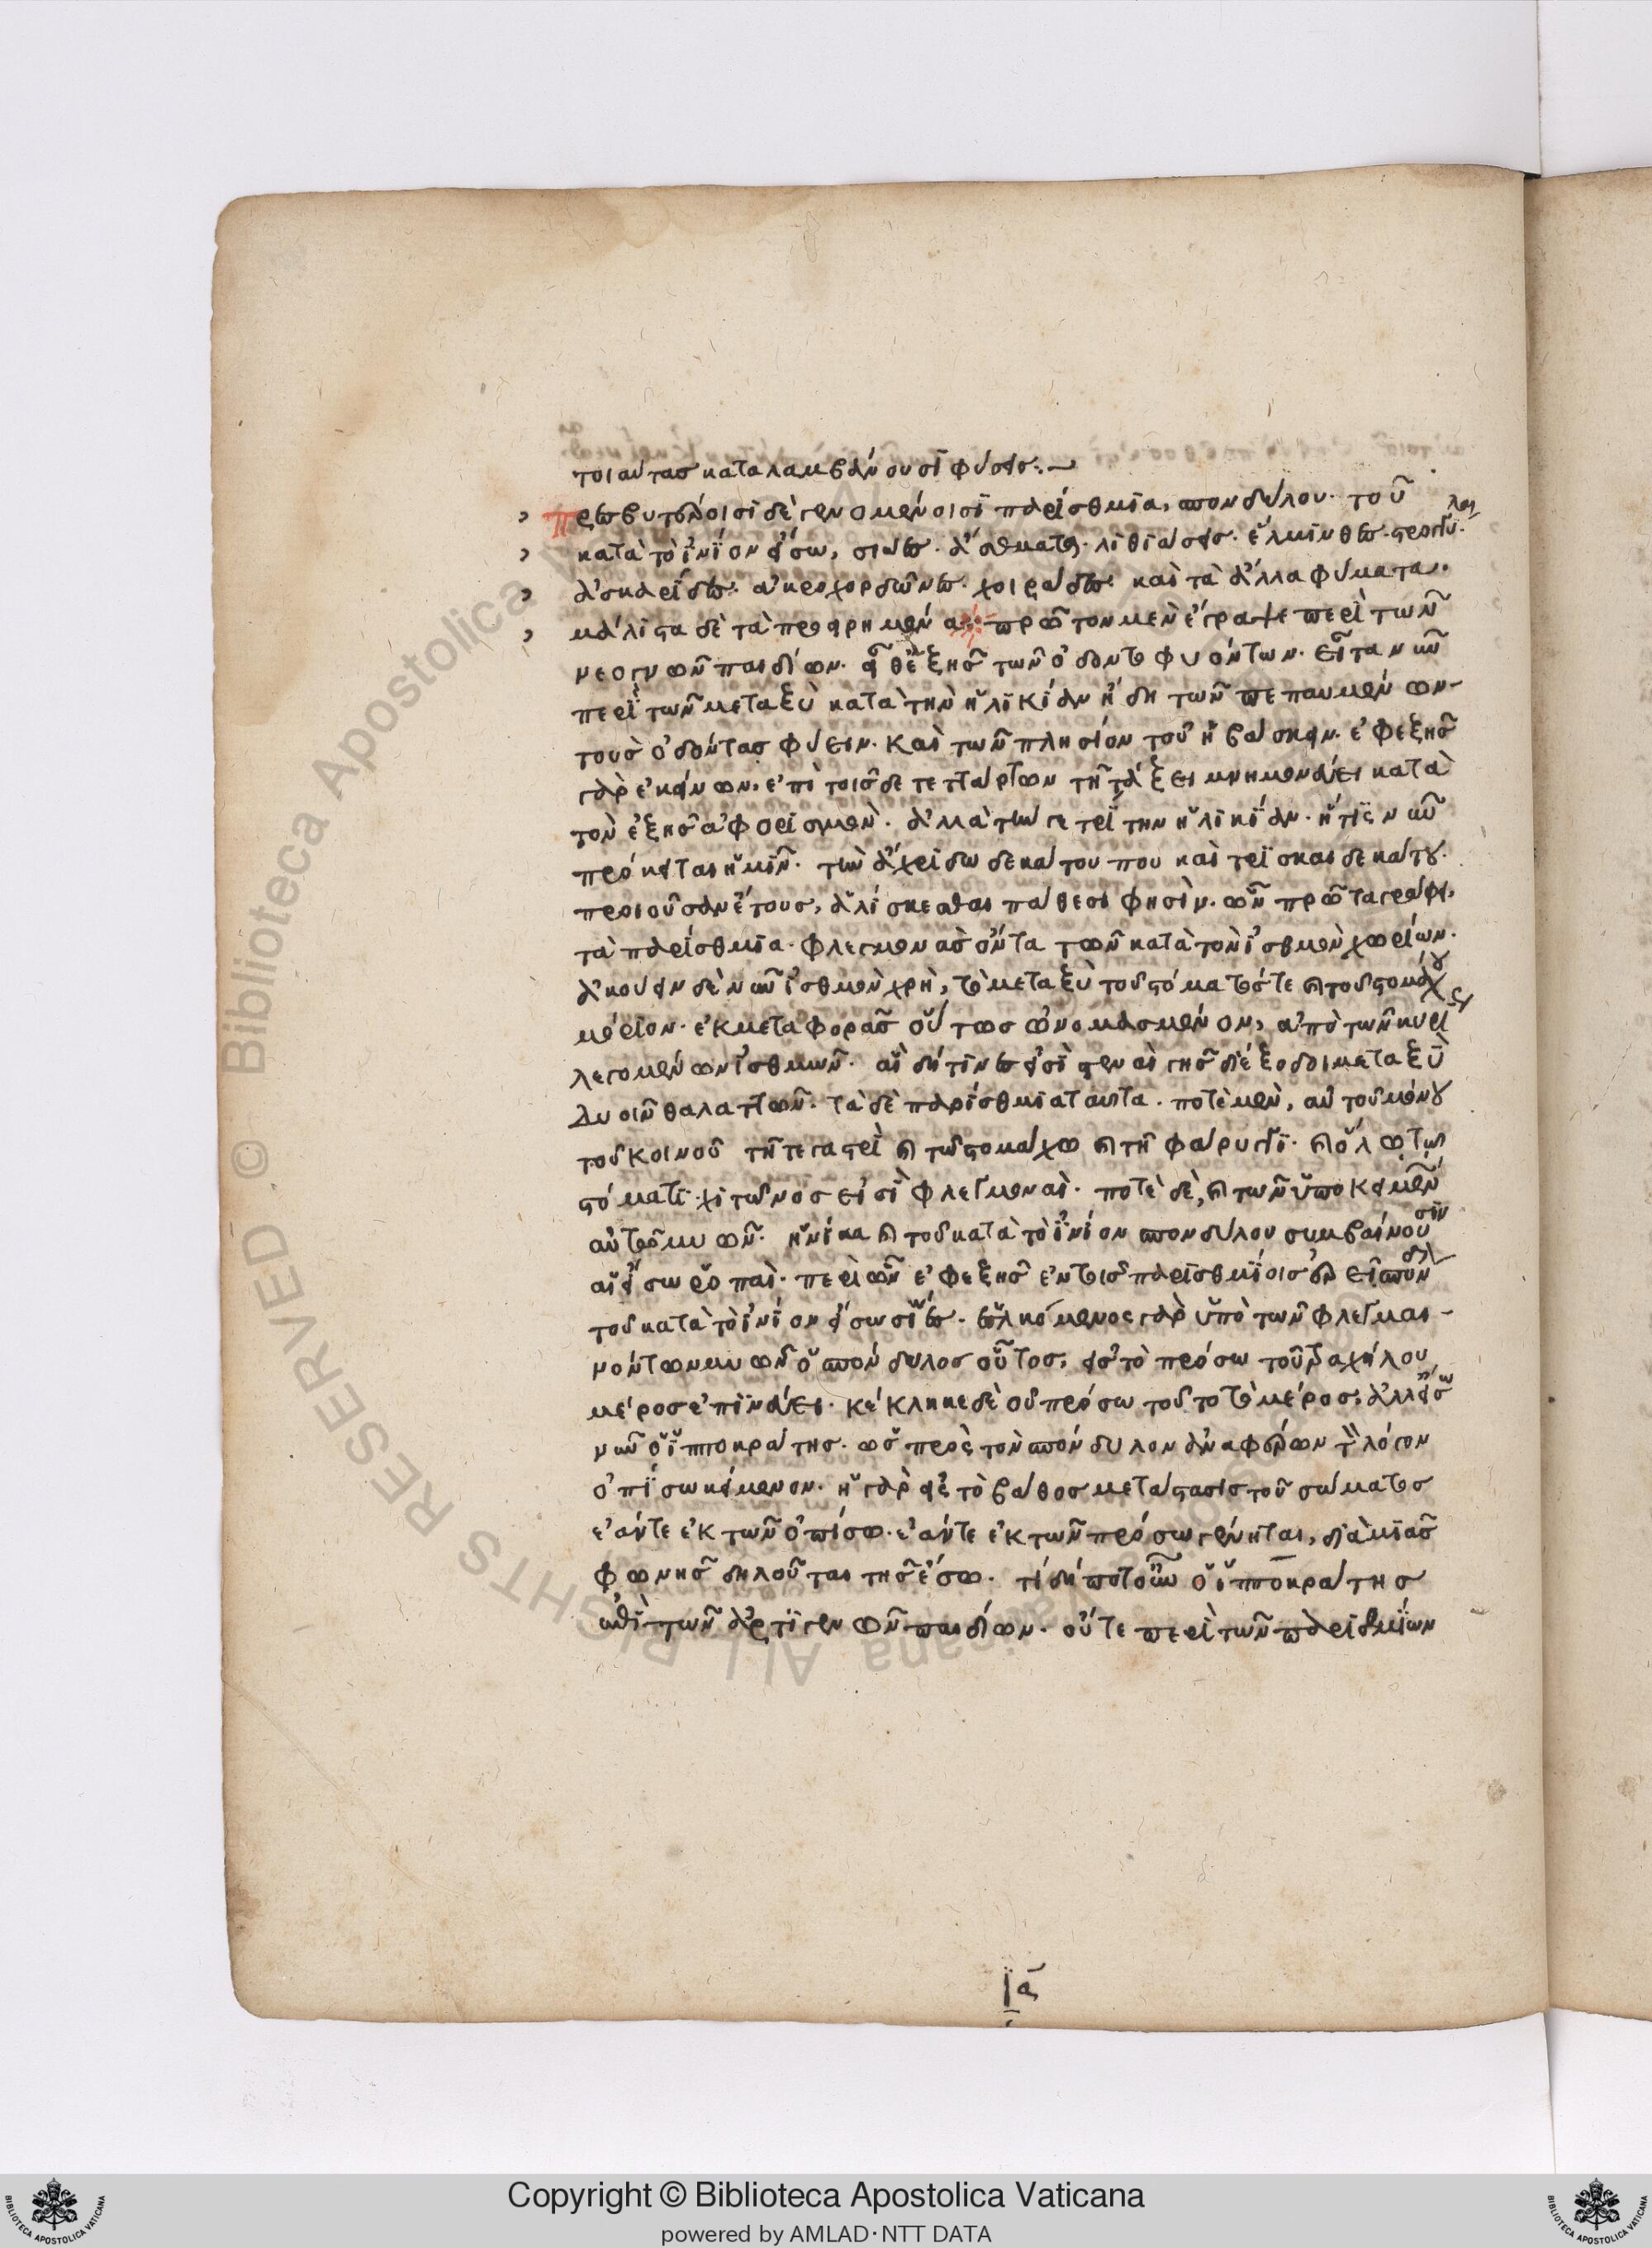 τοιαύτας καταλαμβάνουσι φύσεις:~
Πρεσβυτέροισι δὲ γενομένοισι παρίσθμια, σπονδύλου τοῦ
κατὰ τὸ ἰνίον εἴσω, σιώες. ἄσθματα. λιθιάσεις. ἕλμινθες στρογγύλαι
ἀσκαρίδες. ἀκροχορδῶνες. χοιράδες καὶ τὰ ἄλλα φύματα.
μάλιστα δὲ τὰ προειρημένα: πρῶτον μὲν ἔγραψε περὶ τῶν
νεογνῶν παιδίων. εἶθ' ἑξῆς τῶν ὀδοντοφυόντων. εἶτα νῦν
περὶ τῶν μεταξὺ κατὰ τὴν ἡλικίαν ἤδη τῶν πεπαυμένων
τοὺς ὀδόντας φύειν. καὶ τῶν πλησίον τοῦ ἡβάσκειν. ἐφεξῆς
γὰρ ἐκείνων. ἐπὶ τοῖσδε τετάρτων τῇ τάξει μνημονεύει κατὰ
τὸν ἑξῆς ἀφορισμόν. ἀλλὰ τήν γε τρίτην ἡλικίαν. ἥτις νῦν
πρόκειται ἡμῖν. τὴν ἄχρι δωδεκάτου που καὶ τρισκαιδεκάτου
προιοῦσαν ἔτους, ἁλίσκεσθαι πάθεσι φησίν. ὧν πρῶτα γράφει,
τὰ παρίσθμια. φλεγμονὰς ὄντα τῶν κατὰ τὸν ἰσθμὸν χωρίων.
ἀκούειν δὲ νῦν ἰσθμὸν χρὴ, τὸ μεταξὺ τοῦ στόματός τε καὶ τοῦ στομάχου
μόριον. ἐκ μεταφορᾶς οὕτως ὠνομασμένον, ἀπὸ τῶν κυρίως
λεγομένων ἰσθμῶν. αἳ δή τινες εἰσὶ στεναὶ γῆς διέξοδοι μεταξὺ
δυοῖν θαλαττῶν. τὰ δὲ παρίσθμια ταῦτα. ποτὲ μὲν, αὐτοῦ μόνου
τοῦ κοινοῦ τῇ τε γαστρὶ καὶ τῷ στομάχῳ καὶ τῇ φάρυγγι. καὶ ὅλῳ τῷ
στόματι χιτῶνος εἰσὶ φλεγμοναί. ποτὲ δὲ, καὶ τῶν ὑποκειμένων
αὐτῷ μυῶν. ἡνίκα καὶ τοῦ κατὰ τὸ ἰνίον σπονδύλου συμβαίνουσιν
αἱ εἴσω ῥοπαί. περὶ ὧν ἐφεξῆς ἐν τοῖς παρισθμίοις ὧδε εἶπεν σπονδύλου
τοῦ κατὰ τὸ ἰνίον εἴσω σιώες. ἑλκόμενος γὰρ ὑπὸ τῶν φλεγμαι-
νόντων μυῶν ὁ σπόνδυλος οὗτος, εἰς τὸ πρόσω τοῦ τραχήλου
μέρος ἐπινεύει. κέκληκε δὲ οὐ πρόσω τοῦτο τὸ μέρος, ἀλλ' εἴσω
νῦν ὁ ἱπποκράτης. ὡς πρὸς τὸν σπόνδυλον ἀναφέρων τὸν λόγον
ὀπίσω κείμενον. ἡ γὰρ εἰς τὸ βάθος μετάστασις τοῦ σώματος
ἐάν τε ἐκ τῶν ὀπίσω. ἐάν τε ἐκ τῶν πρόσω γένηται, διὰ μιᾶς
φωνῆς δηλοῦται τῆς ἔσω. τί δήποτ' οὖν ὁ ἱπποκράτης
ἐπὶ τῶν ἀρτιγενῶν παιδίων. οὔτε περὶ τῶν παρισθμίων
ια